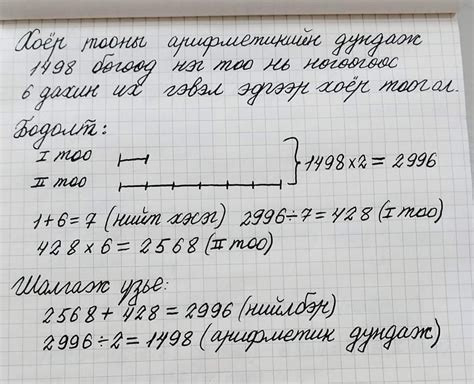 Хоёр тооны арифметикийн дундаж
1498 бөгөөд нэг тоо нь нөгөөгөөс
6 дахин их гэвэл эдгээр хоёр тоог ол.
Бодолт:
I тоо
II тоо
1498×2=2996
1+6=7 (нийт хэсэг) 2996÷7=428 (I тоо)
428×6=2568 (II тоо)
Шалгаж үзье:
2568+428=2996 (нийлбэр)
2996÷2=1498 (арифметик дундаж)